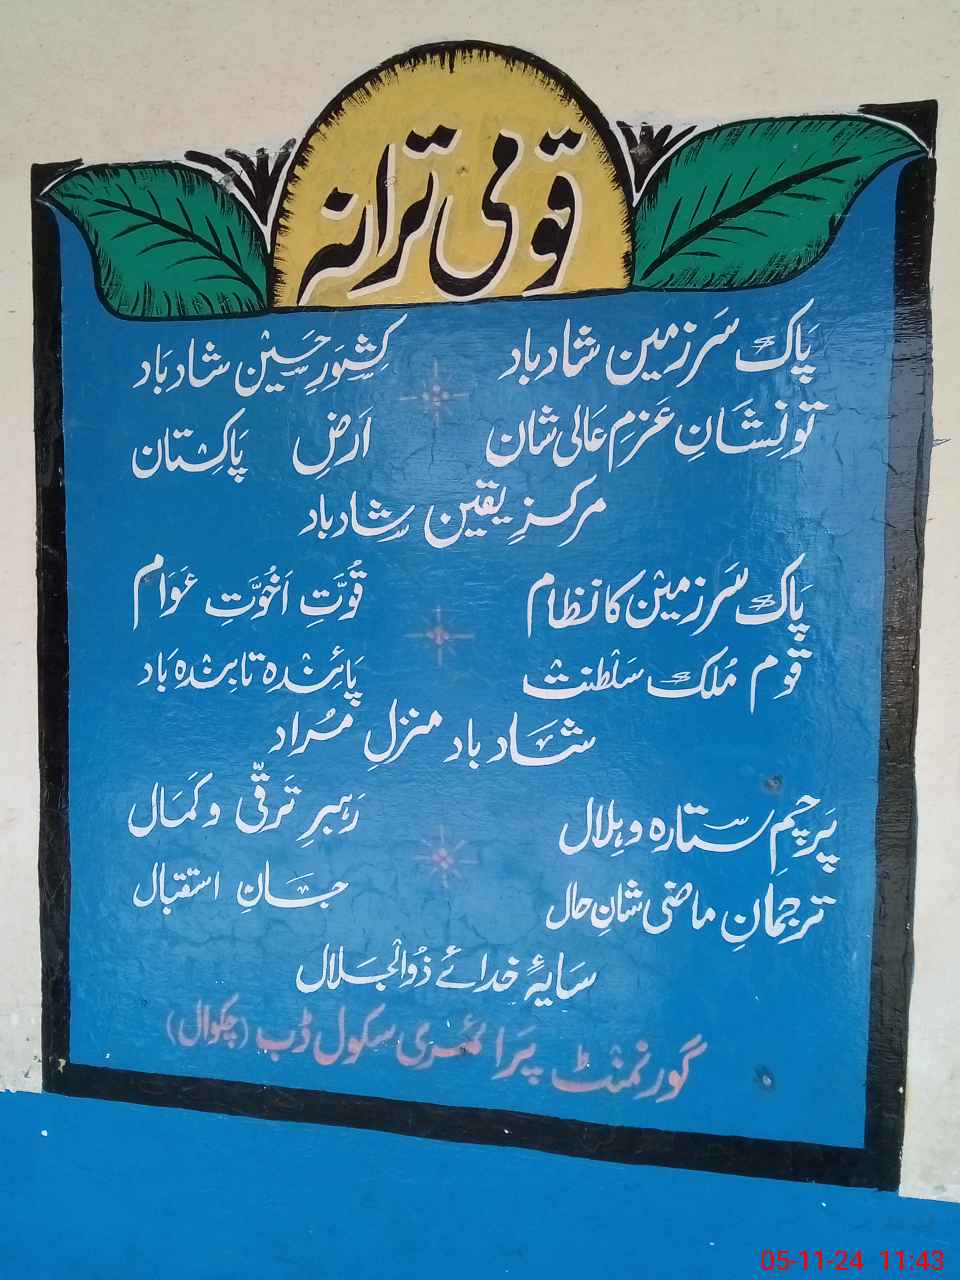 قومی ترانہ
پَاک سَرزمین شاد باد کِشوَرِ حَسِیْن شاد بَاد
تو نِشَانِ عَزمِ عَالی شان اَرضِ پَاکِستان
مرکزِ یقین شاد باد
پَاک سَرزمِیْن کا نظام قُوَّتِ اَخُوَّتِ عَوَام
قوم مُلک سَلْطنت پَائِنْدہ تابِنْدہ بَاد
شَاد باد منزلِ مُراد
پَرچمِ ستارہ و ہِلال رَہبرِ تَرقّی و کَمَال
ترجمانِ ماضی شانِ حال جَانِ استقبال
سَایۂِ خدائے ذُوالْجَلال
گورنمنْٹ پَرائمری سکول ڈب (چکوال)
05-11-24 11:43